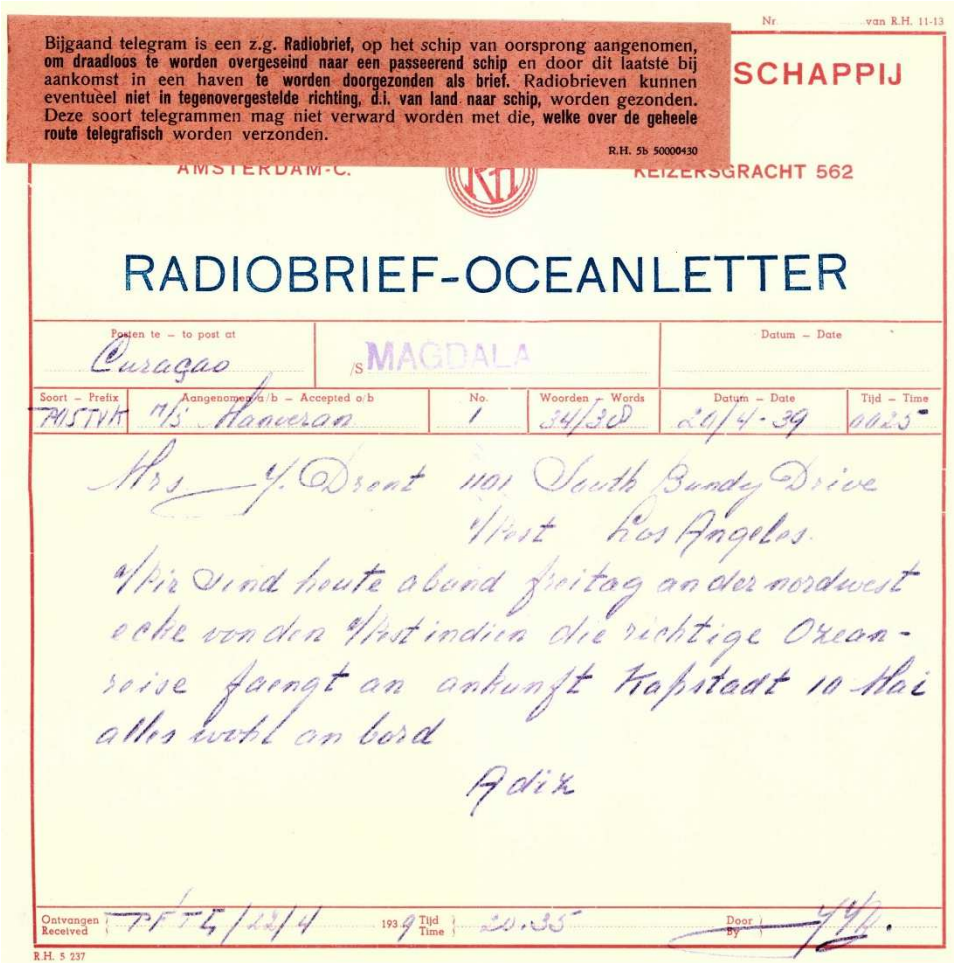 Nr van R.H. 11-13
Bijgaand telegram is een z.g. Radiobrief, op het schip van oorsprong aangenomen,
om draadloos te worden overgeseind naar een passeerend schip en door dit laatste bij
aankomst in een haven te worden doorgezonden als brief. Radiobrieven kunnen
eventueel niet in tegenovergestelde richting, d.i. van land naar schip, worden gezonden.
Deze soort telegrammen mag niet verward worden met die, welke over de geheele
route telegrafisch worden verzonden.
R.H. 5b 50000430
SCHAPPIJ
AMSTERDAM-C. RH KEIZERSGRACHT 562
RADIOBRIEF-OCEANLETTER
Posten te – to post at Datum – Date
Curaçao /S MAGDALA
Soort – Prefix Aangenomen a/b – Accepted o/b No. Woorden – Words Datum – Date Tijd – Time
M/S 1 34/38 20/4-39 0025
Mrs Y. Drent 1101 South Bundy Drive
West Los Angeles.
Wir sind heute abend freitag an der nordwest
ecke von den Westindien die richtige Ozean-
reise faengt an ankunft Kapstadt 10 Mai
alles wohl an bord
Adix
Ontvangen Received 22/4 1939 Tijd Time 20.35 Door By
R.H. 5 237